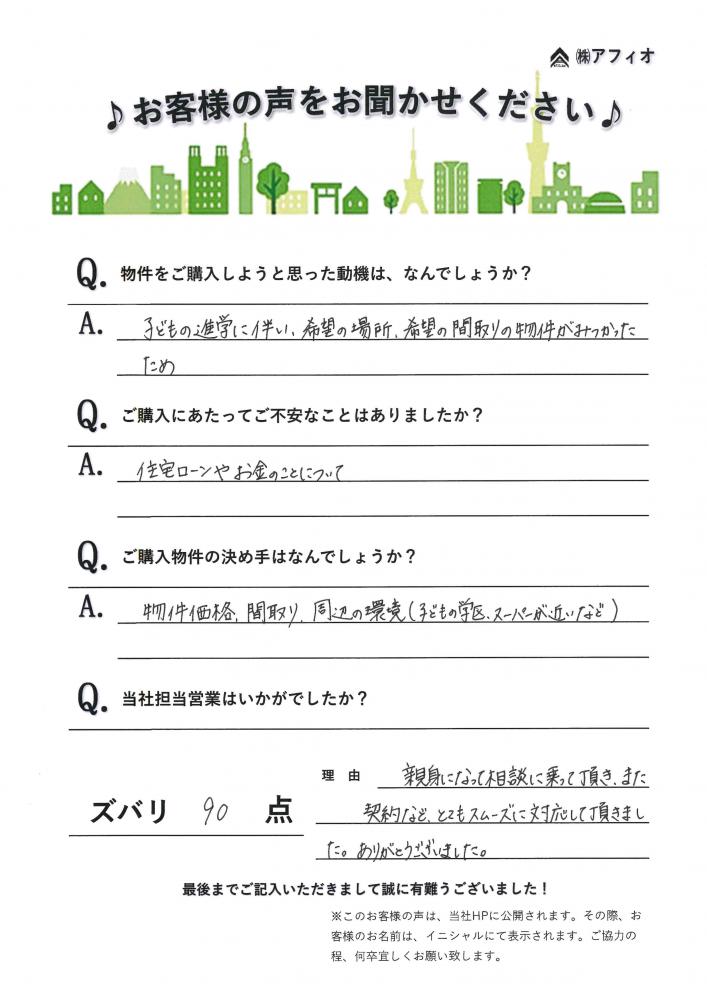 ㈱アフィオ
♪お客様の声をお聞かせください♪
Q. 物件をご購入しようと思った動機は、なんでしょうか？
A. 子どもの進学に伴い、希望の場所、希望の間取りの物件がみつかった
ため
Q. ご購入にあたってご不安なことはありましたか？
A. 住宅ローンやお金のことについて
Q. ご購入物件の決め手はなんでしょうか？
A. 物件価格、間取り、周辺の環境(子どもの学区、スーパーが近いなど)
Q. 当社担当営業はいかがでしたか？
ズバリ 90 点
理由 親身になって相談に乗って頂き、また
契約など、とてもスムーズに対応して頂きまし
た。ありがとうございました。
最後までご記入いただきまして誠に有難うございました！
※このお客様の声は、当社HPに公開されます。その際、お
客様のお名前は、イニシャルにて表示されます。ご協力の
程、何卒宜しくお願い致します。